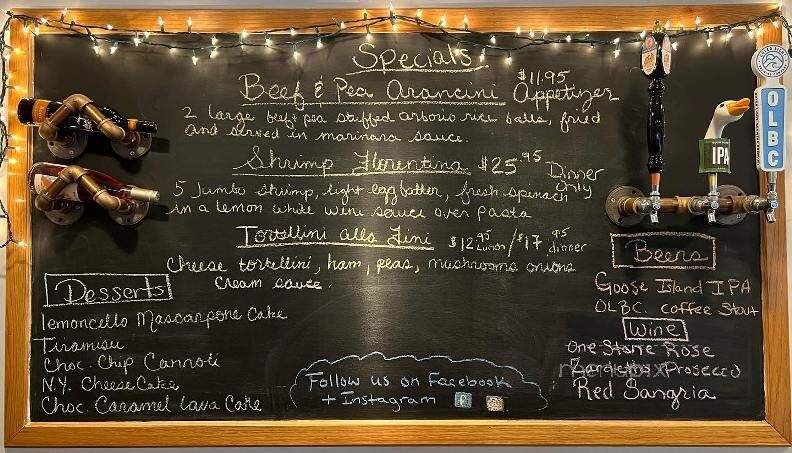 Specials
Beef & Pea Arancini $11.95 Appetizer
2 large beef & pea stuffed arborio rice balls, fried
and served in marinara sauce.
Shrimp Florentina $25.95 Dinner Only
5 Jumbo shrimp, light egg batter, fresh spinach
in a lemon white wine sauce over pasta
Tortellini alla Zini $12.95 Lunch / $17.95 dinner
Cheese tortellini, ham, peas, mushrooms onions
cream sauce.
Desserts
lemoncello Mascarpone Cake
Tiramisu
Choc. Chip Cannoli
N.Y. Cheese Cake
Choc. Caramel Lava Cake
Follow us on Facebook
+ Instagram
IPA
OLBC
Beers
Goose Island IPA
OLBC Coffee Stout
Wine
One Stone Rose
Prosecco
Red Sangria